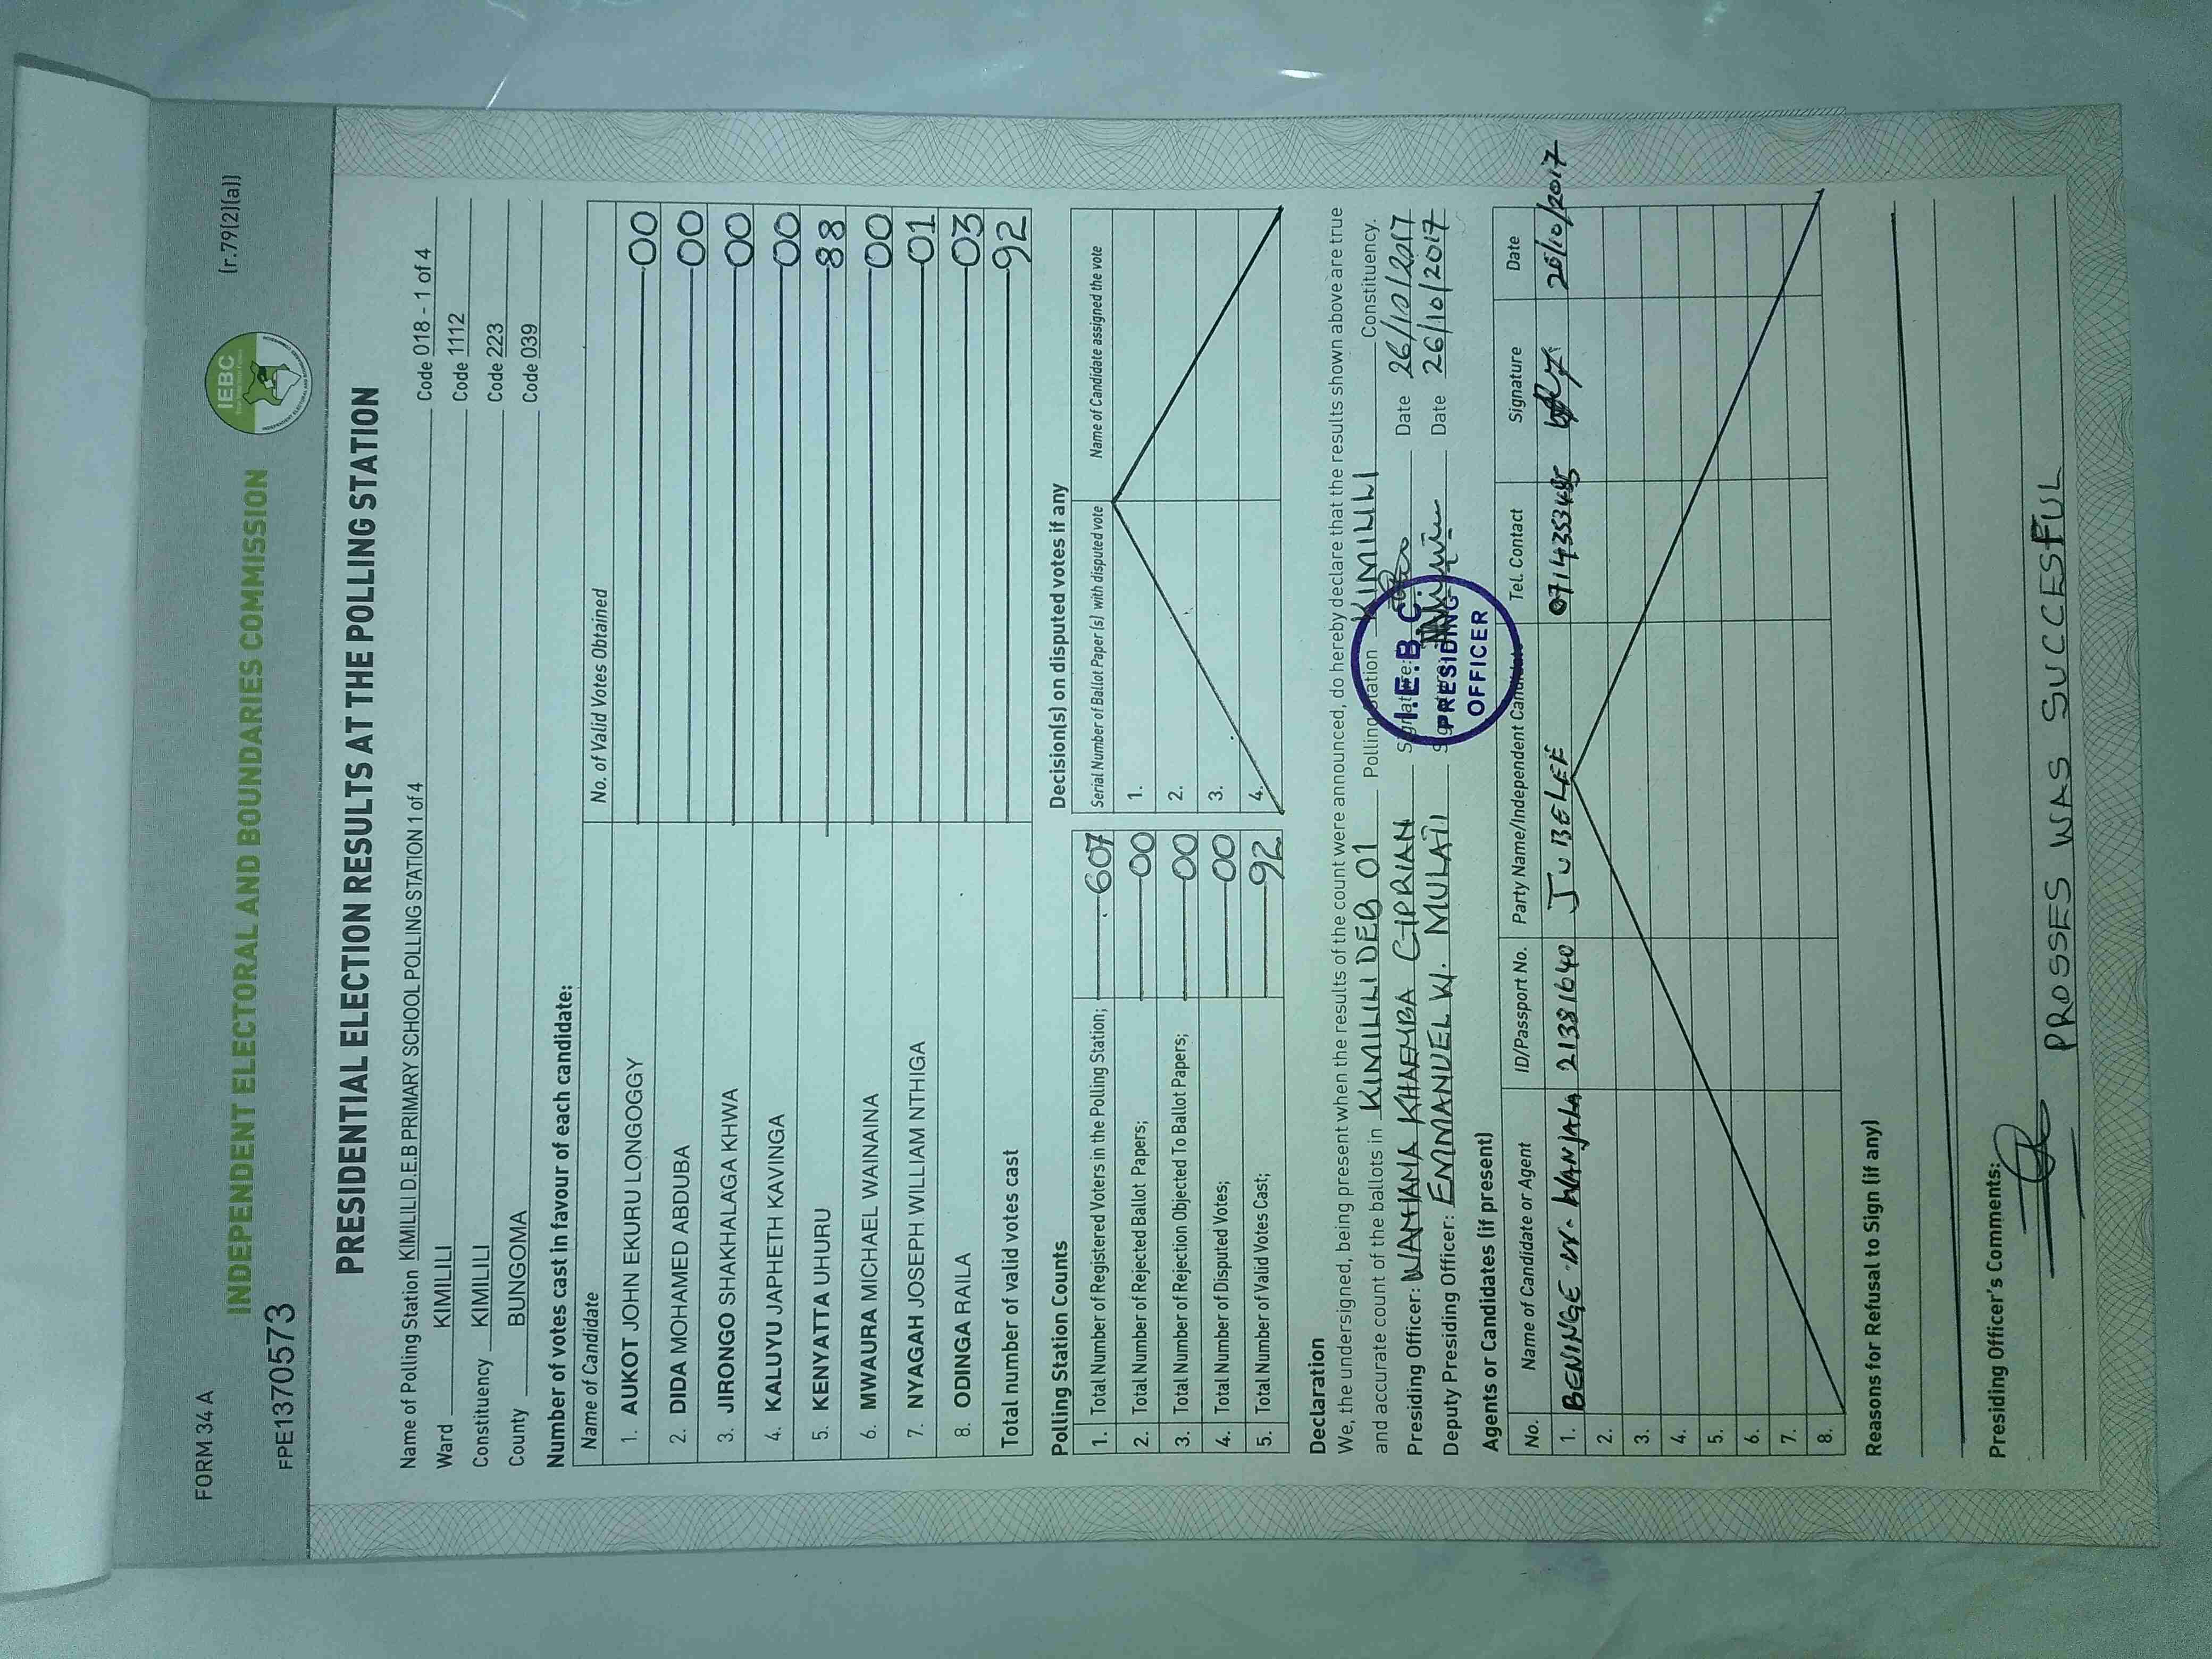 FORM 34 A
(r.79(2)(a))
IEBC
INDEPENDENT ELECTORAL AND BOUNDARIES COMMISSION
FPE1370573
PRESIDENTIAL ELECTION RESULTS AT THE POLLING STATION
Name of Polling Station KIMILILI D.E.B PRIMARY SCHOOL POLLING STATION 1 of 4 Code 018 - 1 of 4
Ward KIMILILI Code 1112
Constituency KIMILILI Code 223
County BUNGOMA Code 039
Number of votes cast in favour of each candidate:
Name of Candidate No. of Valid Votes Obtained
1. AUKOT JOHN EKURU LONGOGGY 00
2. DIDA MOHAMED ABDUBA 00
3. JIRONGO SHAKHALAGA KHWA 00
4. KALUYU JAPHETH KAVINGA 00
5. KENYATTA UHURU 88
6. MWAURA MICHAEL WAINAINA 00
7. NYAGAH JOSEPH WILLIAM NTHIGA 01
8. ODINGA RAILA 03
Total number of valid votes cast 92
Polling Station Counts
1. Total Number of Registered Voters in the Polling Station; 607
2. Total Number of Rejected Ballot Papers; 00
3. Total Number of Rejection Objected To Ballot Papers; 00
4. Total Number of Disputed Votes; 00
5. Total Number of Valid Votes Cast; 92
Decision(s) on disputed votes if any
Serial Number of Ballot Paper (s) with disputed vote Name of Candidate assigned the vote
1.
2.
3.
4.
Declaration
We, the undersigned, being present when the results of the count were announced, do hereby declare that the results shown above are true
and accurate count of the ballots in KIMILILI DEB 01 Polling Station KIMILILI Constituency.
Presiding Officer: WANJAMA KHAEMBA CIPRIAN Signature: Date 26/10/2017
Deputy Presiding Officer: EMMANUEL W. MULATI Signature: Date 26/10/2017
I.E.B.C.
PRESIDING
OFFICER
Agents or Candidates (if present)
No. Name of Candidate or Agent ID/Passport No. Party Name/Independent Candidate Tel. Contact Signature Date
1. BENINGE W. WANJALA 21381640 JUBELEE 0714353485 26/10/2017
2.
3.
4.
5.
6.
7.
8.
Reasons for Refusal to Sign (if any)
Presiding Officer's Comments:
PROSSES WAS SUCCESFUL